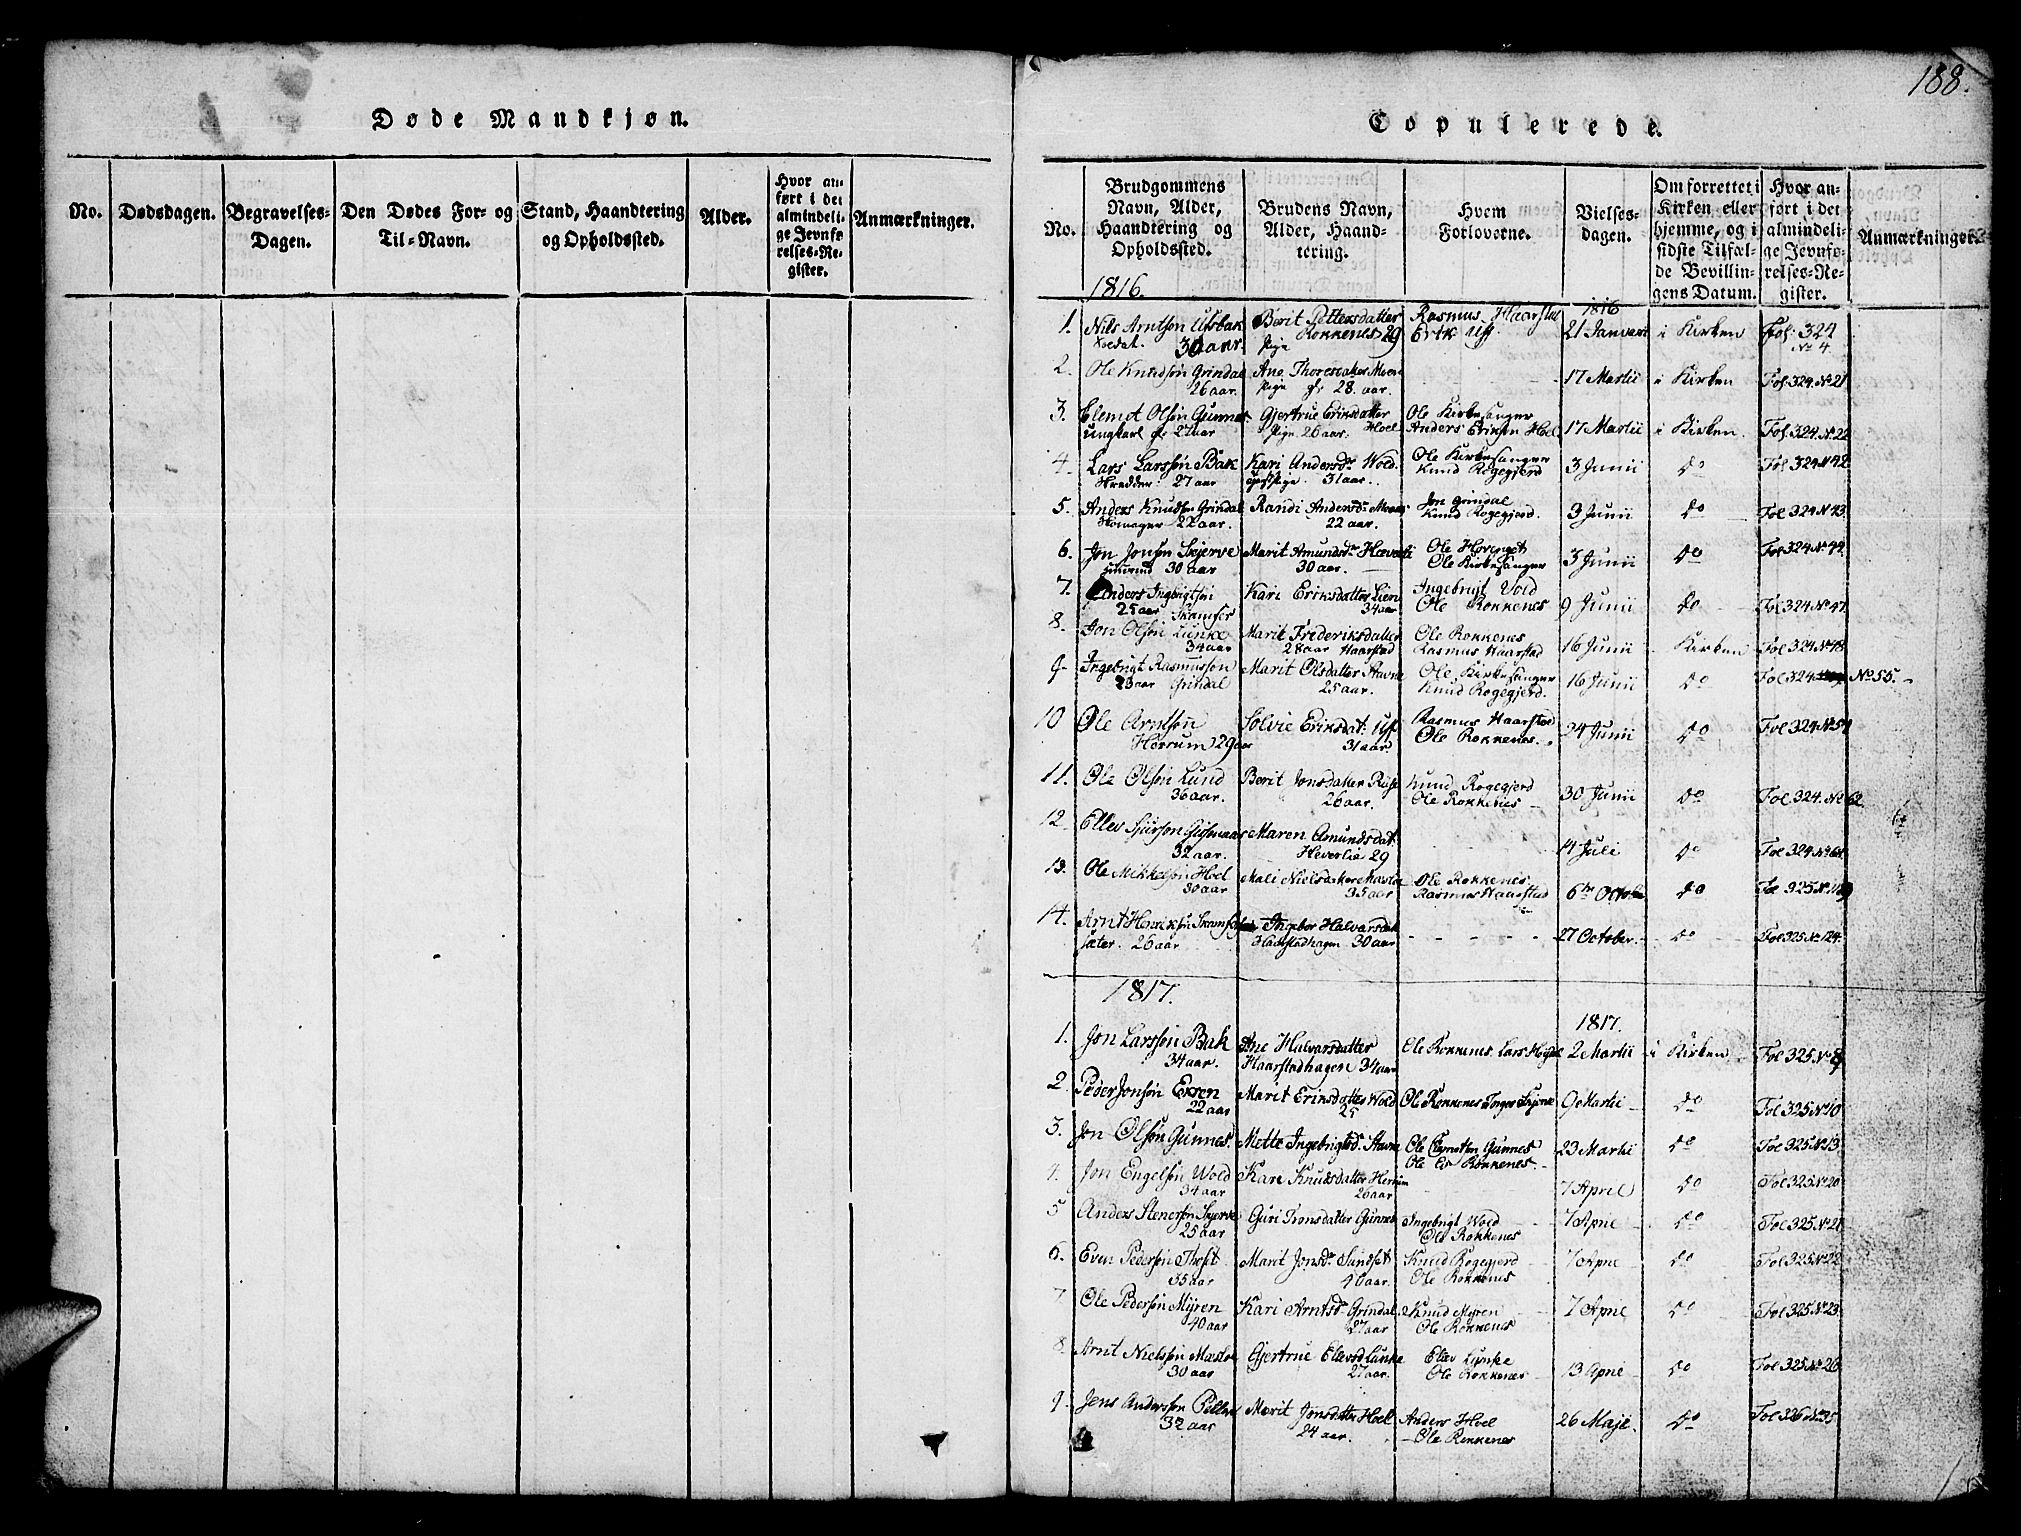 188.
Døde Mandkjøn.
No.
Dødsdagen.
Begravelses-
Dagen.
Den Dødes For- og
Til-Navn.
Stand, Haandtering
og Opholdssted.
Alder.
Hvor an-
ført i det
almindeli-
ge Jevnfø-
relses-Re-
gister.
Anmærkninger.
Copulerede.
No.
Brudgommens
Navn, Alder,
Haandtering og
Opholdssted.
Brudens Navn,
Alder, Haand-
tering.
Hvem
Forloverne.
Vielses-
dagen.
Om forrettet i
Kirken eller
hjemme, og i
sidste Tilfæl-
de Bevillin-
gens Datum.
Hvor an-
ført i det
almindeli-
ge Jevnfø-
relses-Re-
gister.
Anmærkninger.
1816.
1816
1. Nils Arntsøn Berit Pettersdatter Rasmus Haarstad
30 aar. Rokkenes 29 Erik Uff 21 Januari i Kirken Fol. 324
Pige No 4
2. Ole Knudsøn Grindal Ane Thoresdatter Moen
26 aar. Pige 28 aar. 17 Martii i Kirken Fol 324 No 21
3. Clemet Olsøn Gunnes Gjertrue Eriksdatter Ole Kirkesanger
ungkarl 27 aar Pige 26 aar. Hoel Anders Eriksen Hoel 17 Martii i Kirken. Fol. 324 No 22
4. Lars Larssøn Bak Kari Andersdr Wold. Ole Kirkesanger
skredder 27 aar Pige. 31 aar. Knud Rogegjerd 3 Junii do Fol 324 No 42
5. Anders Knudsøn Grindal Randi Andersdr Jon Grindal
Skomager 22 aar. 22 aar. Knud Rogegjerd. 3 Junii do Fol 324 No 43.
6. Jon Jonsøn Skjerve Marit Amundsdr Ole
30 aar 30 aar. Ole Kirkesanger 3 Junii do Fol 324 No 44.
7. Anders Ingebrigtsøn Kari Eriksdatter Lien Ingebrigt Vold
25 aar. Skamfer 34 aar Ole Rokkenes 9 Junii do Fol 324 No 47.
8. Jon Olsøn Lunke Marit Frederiksdatter Ole Rokkenes
34 aar 28 aar Haarstad Rasmus Haarstad 16 Junii Kirken Fol 324 No 48
9. Ingebrigt Rasmussøn Marit Olsdatter Stavne Ole Kirkesanger
23 aar Grindal 25 aar. Knud Rogegjerd. 16 Junii do Fol 324 No 55.
10 Ole Arntsøn Solvie Eriksdat. Uff Rasmus Haarstad
Horrum 29 aar 31 aar. Ole Rokkenes. 24 Junii do Fol 324 No 54
11. Ole Olsøn Lund Berit Jonsdatter Knud Rogegjerd
36 aar. 26 aar. Ole Rokkenes 30 Junii do Fol 324. No 62.
12. Ellev Sjursøn Maren Amundsdat.
32 aar. Heverlie 29 14 Juli do Fol 324 No 64.
13. Ole Mikkelsøn Hoel Mali Nielsdatter Ole Rokkenes
30 aar 35 aar Rasmus Haarstad 6te October do Fol 325 No
14. Arnt Henriksøn Ingebor Halvarsdat
26 aar Haarstadhagen 30 aar 27 October. do Fol 325 No 124.
1817.
1817.
1. Jon Larssøn Bak Ane Halvarsdatter Ole Rokkenes. Lars 2 Martii i Kirken Fol 325. No 8
34 aar. Haarstadhagen 34 aar
2. Peder Jonsøn Marit Eriksdatter Wold Ole Rokkenes 9 Martii do Fol 325 No 10
22 aar 25
3. Jon Olsøn Gunnes. Mette Ingebrigtsd. Stavne Ole Clemetsen Gunnes 23 Martii do Fol 325 No 13
Ole Rokkenes.
4. Jon Engelsøn Wold Kari Knudsdatter
34 aar 26 aar 7 April do Fol 325. No 20
5 Anders Stenersøn Skjerve Guri Tronsdatter Gunnes Ingebrigt Wold 7 April do Fol 325. No 21
25 aar Ole Rokkenes
6. Even Pedersøn Marit Jonsdr Sandset Knud Rogegjerd 7 April do Fol 325 No 22
35 aar 40 aar. Ole Rokkenes
7 Ole Pedersøn Myren Kari Arntsd. Grindal Knud Myren 7 April do Fol 325 No 23.
40 aar 27 aar Ole Rokkenes
8. Arnt Nielssøn Gjertrue Ellevsd Lunke Ellev Lunke
30 aar 27 aar. Ole Rokkenes 13 April do Fol 325. No 26
9. Jens Anderssøn Marit Jonsdatter Hoel Anders Hoel 26 Maji. do Fol 326 No 35
32 aar 24 aar. Ole Rokkenes